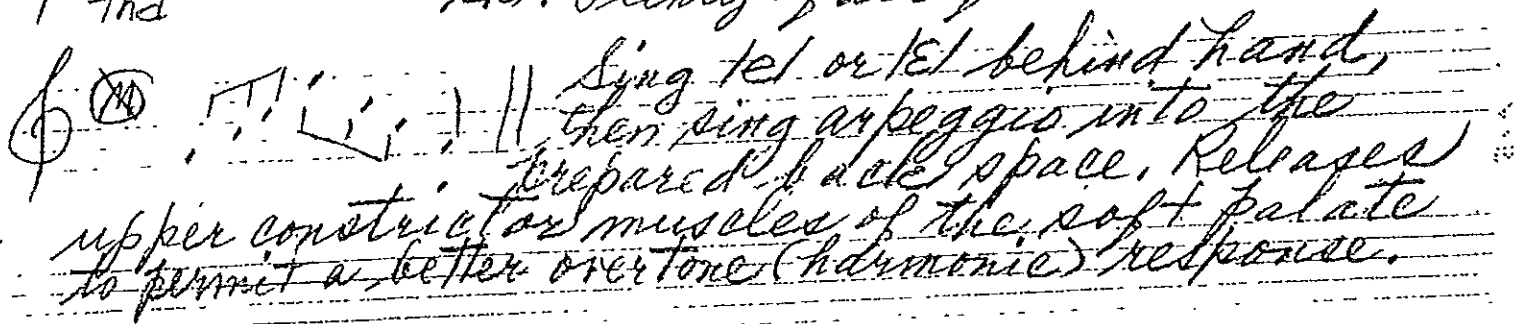 Ind
M Sing /e/ or /ɛ/ behind hand,
then sing arpeggio into the
prepared back space. Releases
upper constrictor muscles of the soft palate
to permit a better overtone (harmonic) response.